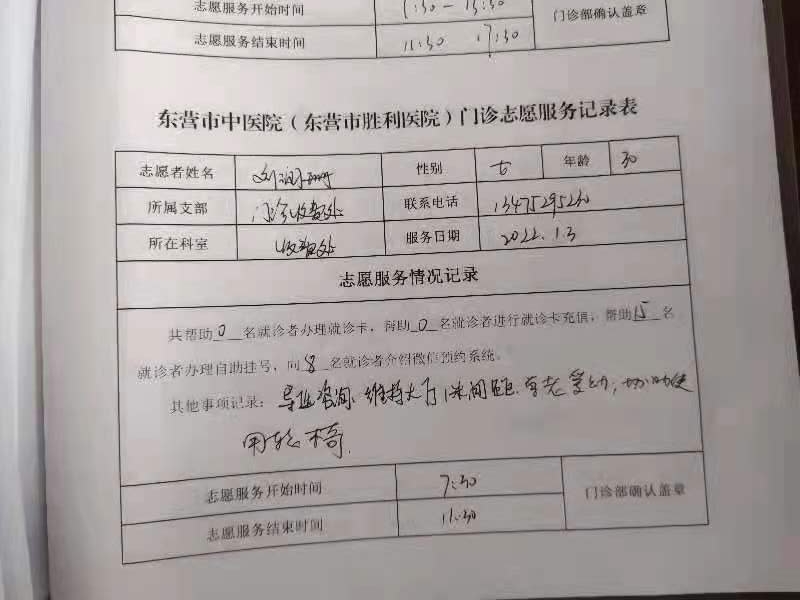 志愿服务开始时间
志愿服务结束时间 11:30 17:30 门诊部确认盖章
东营市中医院（东营市胜利医院）门诊志愿服务记录表
志愿者姓名 性别 女 年龄 30
所属支部 门诊收费处 联系电话
所在科室 收费处 服务日期 2022.1.3
志愿服务情况记录
共帮助 0 名就诊者办理就诊卡，帮助 0 名就诊者进行就诊卡充值，帮助 15 名
就诊者办理自助挂号，向 8 名就诊者介绍微信预约系统。
其他事项记录：导医咨询 维持大厅 间距
用轮椅.
志愿服务开始时间 7:30 门诊部确认盖章
志愿服务结束时间 11:30